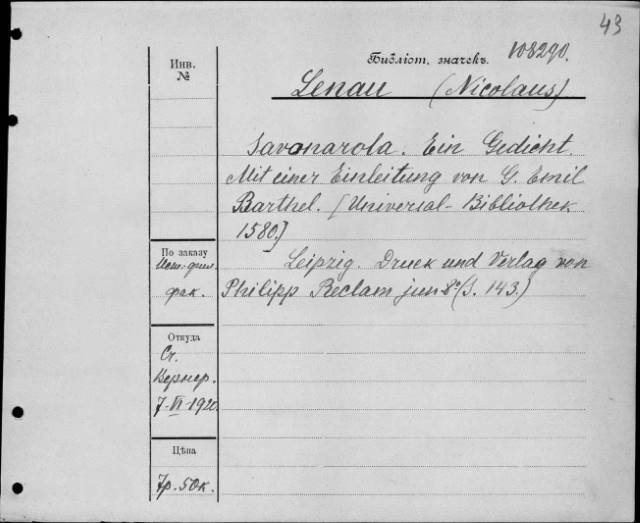 43
Библіот. значекъ 108290.
Инв.
№
Lenau (Nicolaus)
Savonarola. Ein Gedicht.
Mit einer Einleitung von G. Emil
Barthel. [Universal-Bibliothek
1580.]
Leipzig. Druck und Verlag von
Philipp Reclam jun. 8° (S. 143.)
По заказу
Ист.-фил.
фак.
Откуда
Ст.
Вернер.
7-VI-1920
Цѣна
7р. 50к.